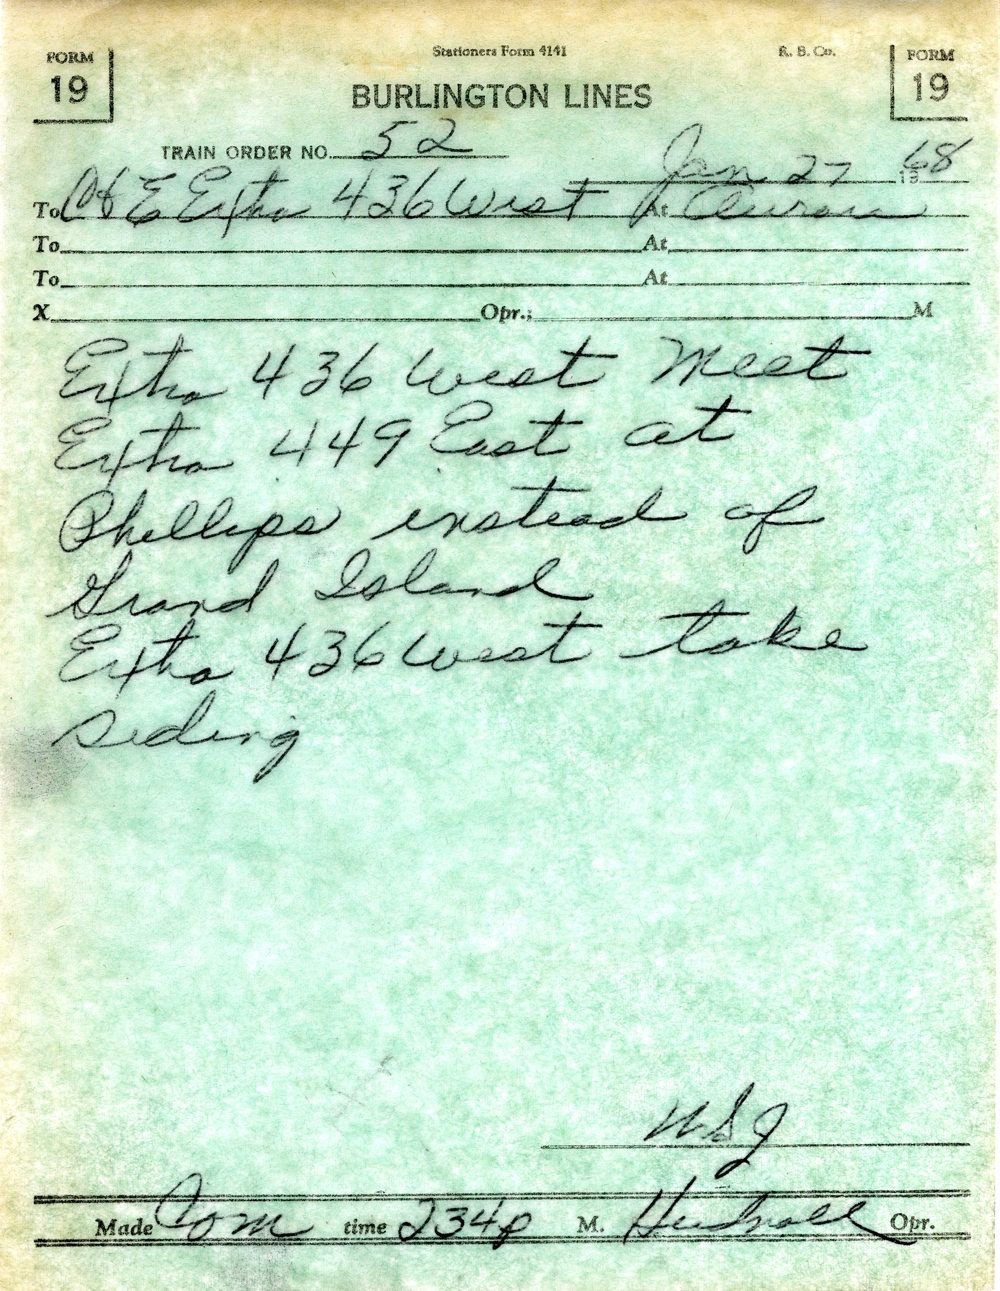 Stationers Form 4141 R. B. Co.
FORM 19 FORM 19
BURLINGTON LINES
TRAIN ORDER NO. 52
Jan 27 1968
To C&E Extra 436 West At Aurora
To At
To At
X Opr.; M
Extra 436 West Meet
Extra 449 East at
Phillips instead of
Grand Island
Extra 436 West take
siding
WSJ
Made Com time 234p M. Hudnall Opr.